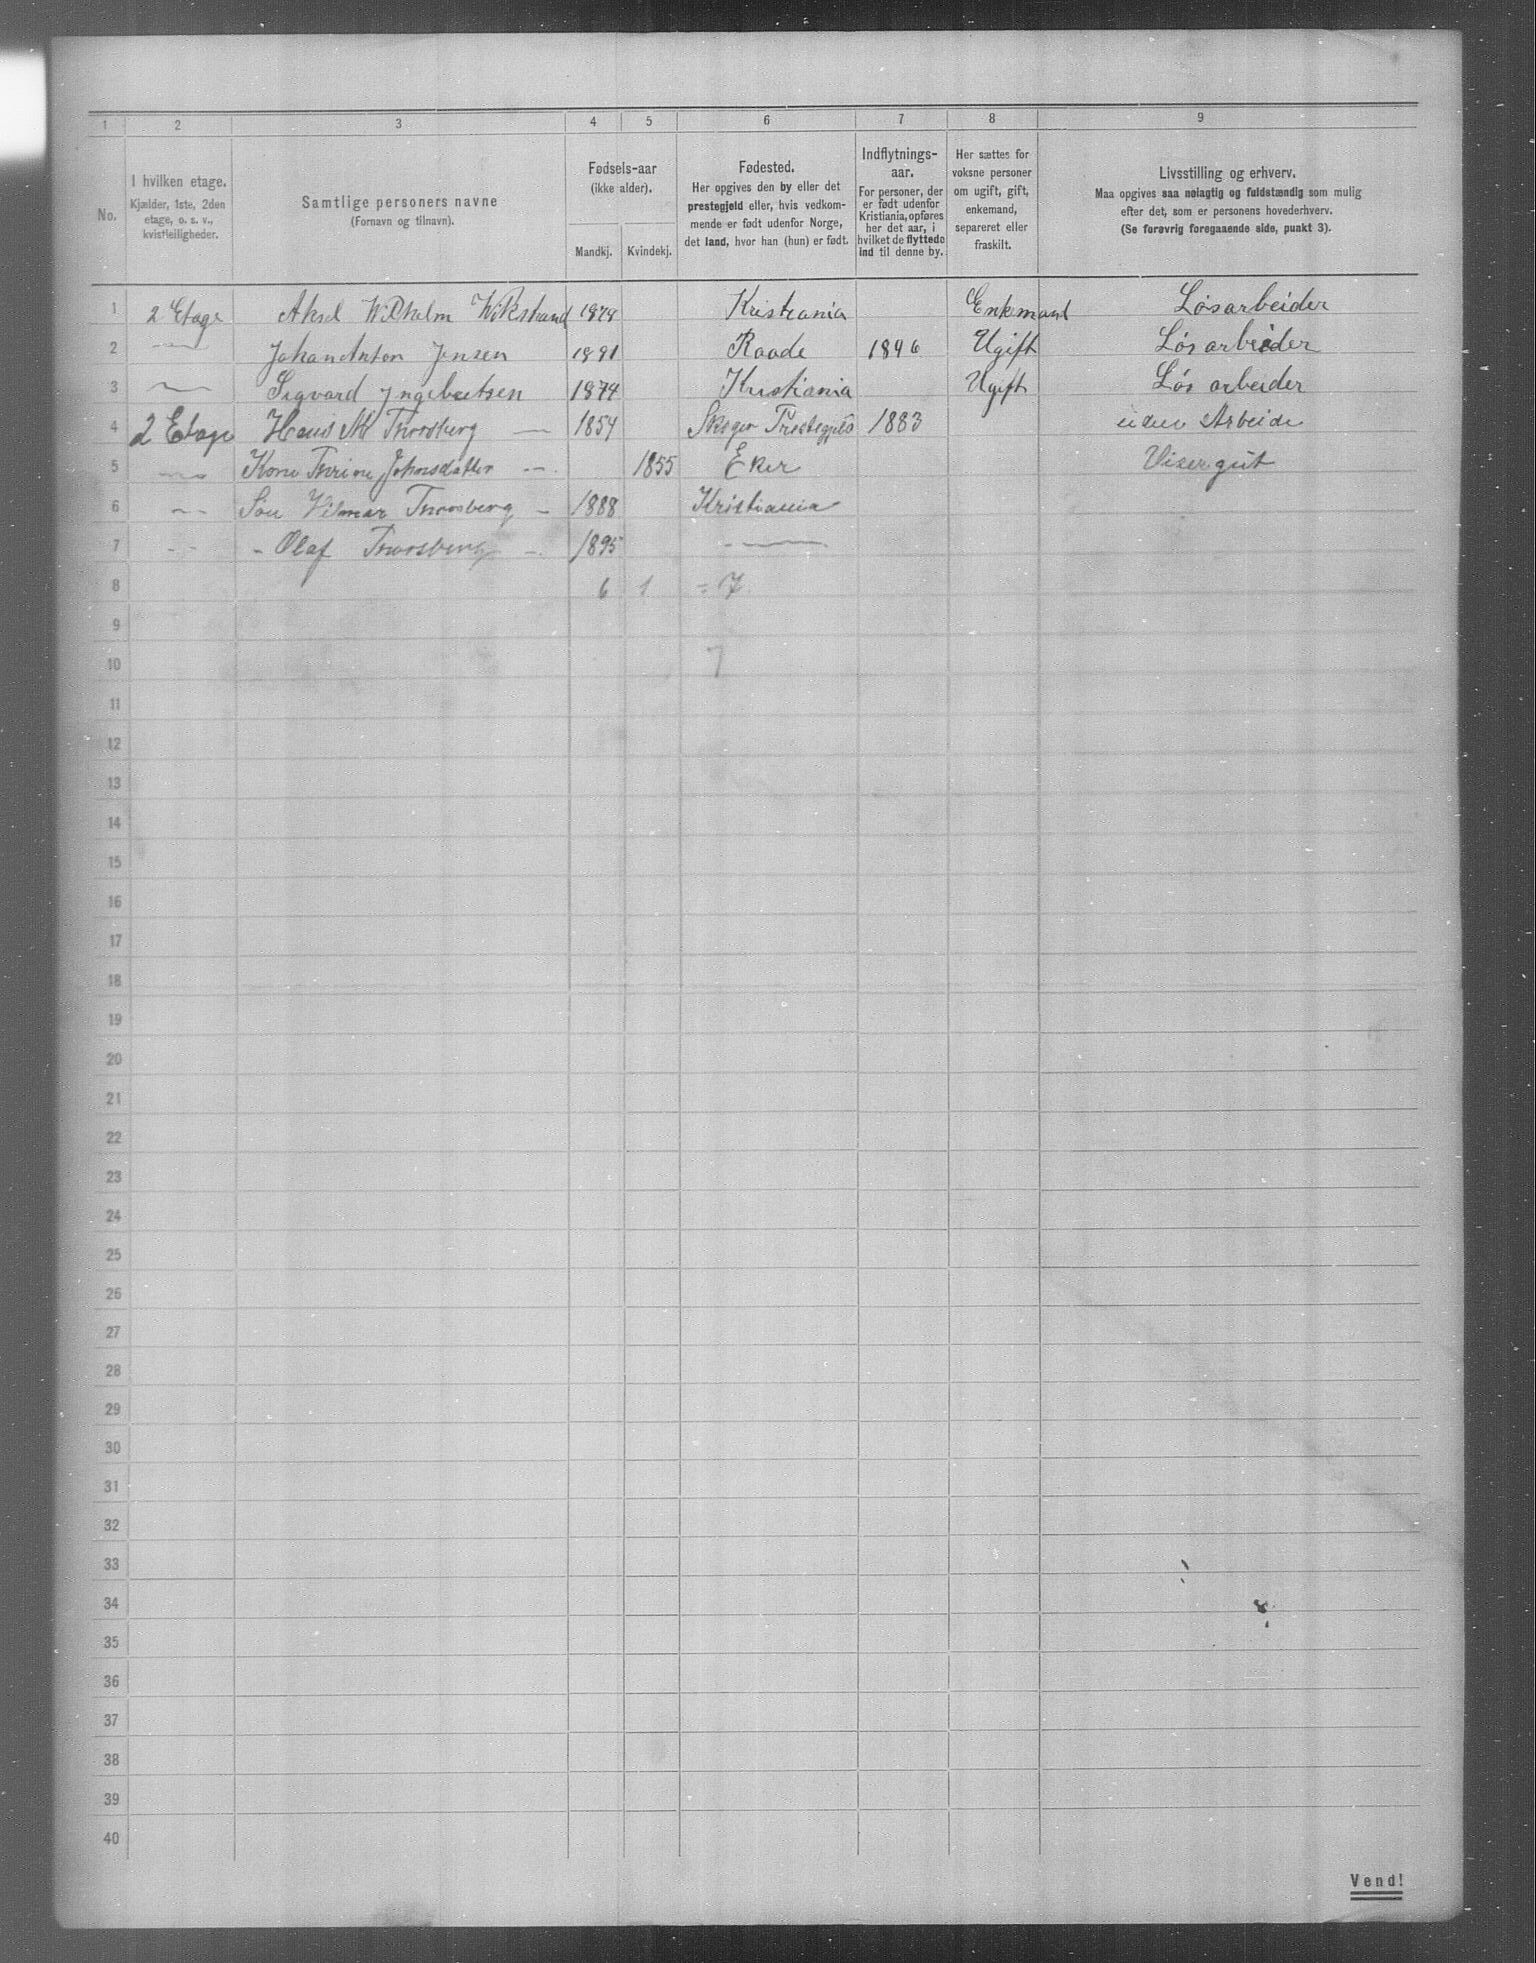 1 2 3 4 5 6 7 8 9
No.
I hvilken etage.
Kjælder, 1ste, 2den
etage, o. s. v.,
kvistleiligheder.
Samtlige personers navne
(Fornavn og tilnavn).
Fødsels-aar
(ikke alder).
Mandkj. Kvindekj.
Fødested.
Her opgives den by eller det
prestegjeld eller, hvis vedkom-
mende er født udenfor Norge,
det land, hvor han (hun) er født.
Indflytnings-
aar.
For personer, der
er født udenfor
Kristiania, opføres
her det aar, i
hvilket de flyttede
ind til denne by.
Her sættes for
voksne personer
om ugift, gift,
enkemand,
separeret eller
fraskilt.
Livsstilling og erhverv.
Maa opgives saa nøiagtig og fuldstændig som mulig
efter det, som er personens hovederhverv.
(Se forøvrig foregaaende side, punkt 3).
1 2 Etage Aksel Wilhelm Wikstrand Kristiania Enkemand Løsarbeider
2 — Johan Anton Jensen 1891 Raade 1896 Ugift Løsarbeider
3 — Sigvard Ingebretsen 1874 Kristiania Ugift Løs arbeider
4 2 Etage Hans M Thorsberg — 1854 Skoger 1883 uden Arbeide
5 — Kone Thrine Johnsdatter — 1855 Eker Visergut
6 — Søn Vilmar Thorsberg — 1888 Kristiania
7 - - - Olaf Thorsberg — 1895 —
8 6 1 = 7
9
10 7
11
12
13
14
15
16
17
18
19
20
21
22
23
24
25
26
27
28
29
30
31
32
33
34
35
36
37
38
39
40
Vend!